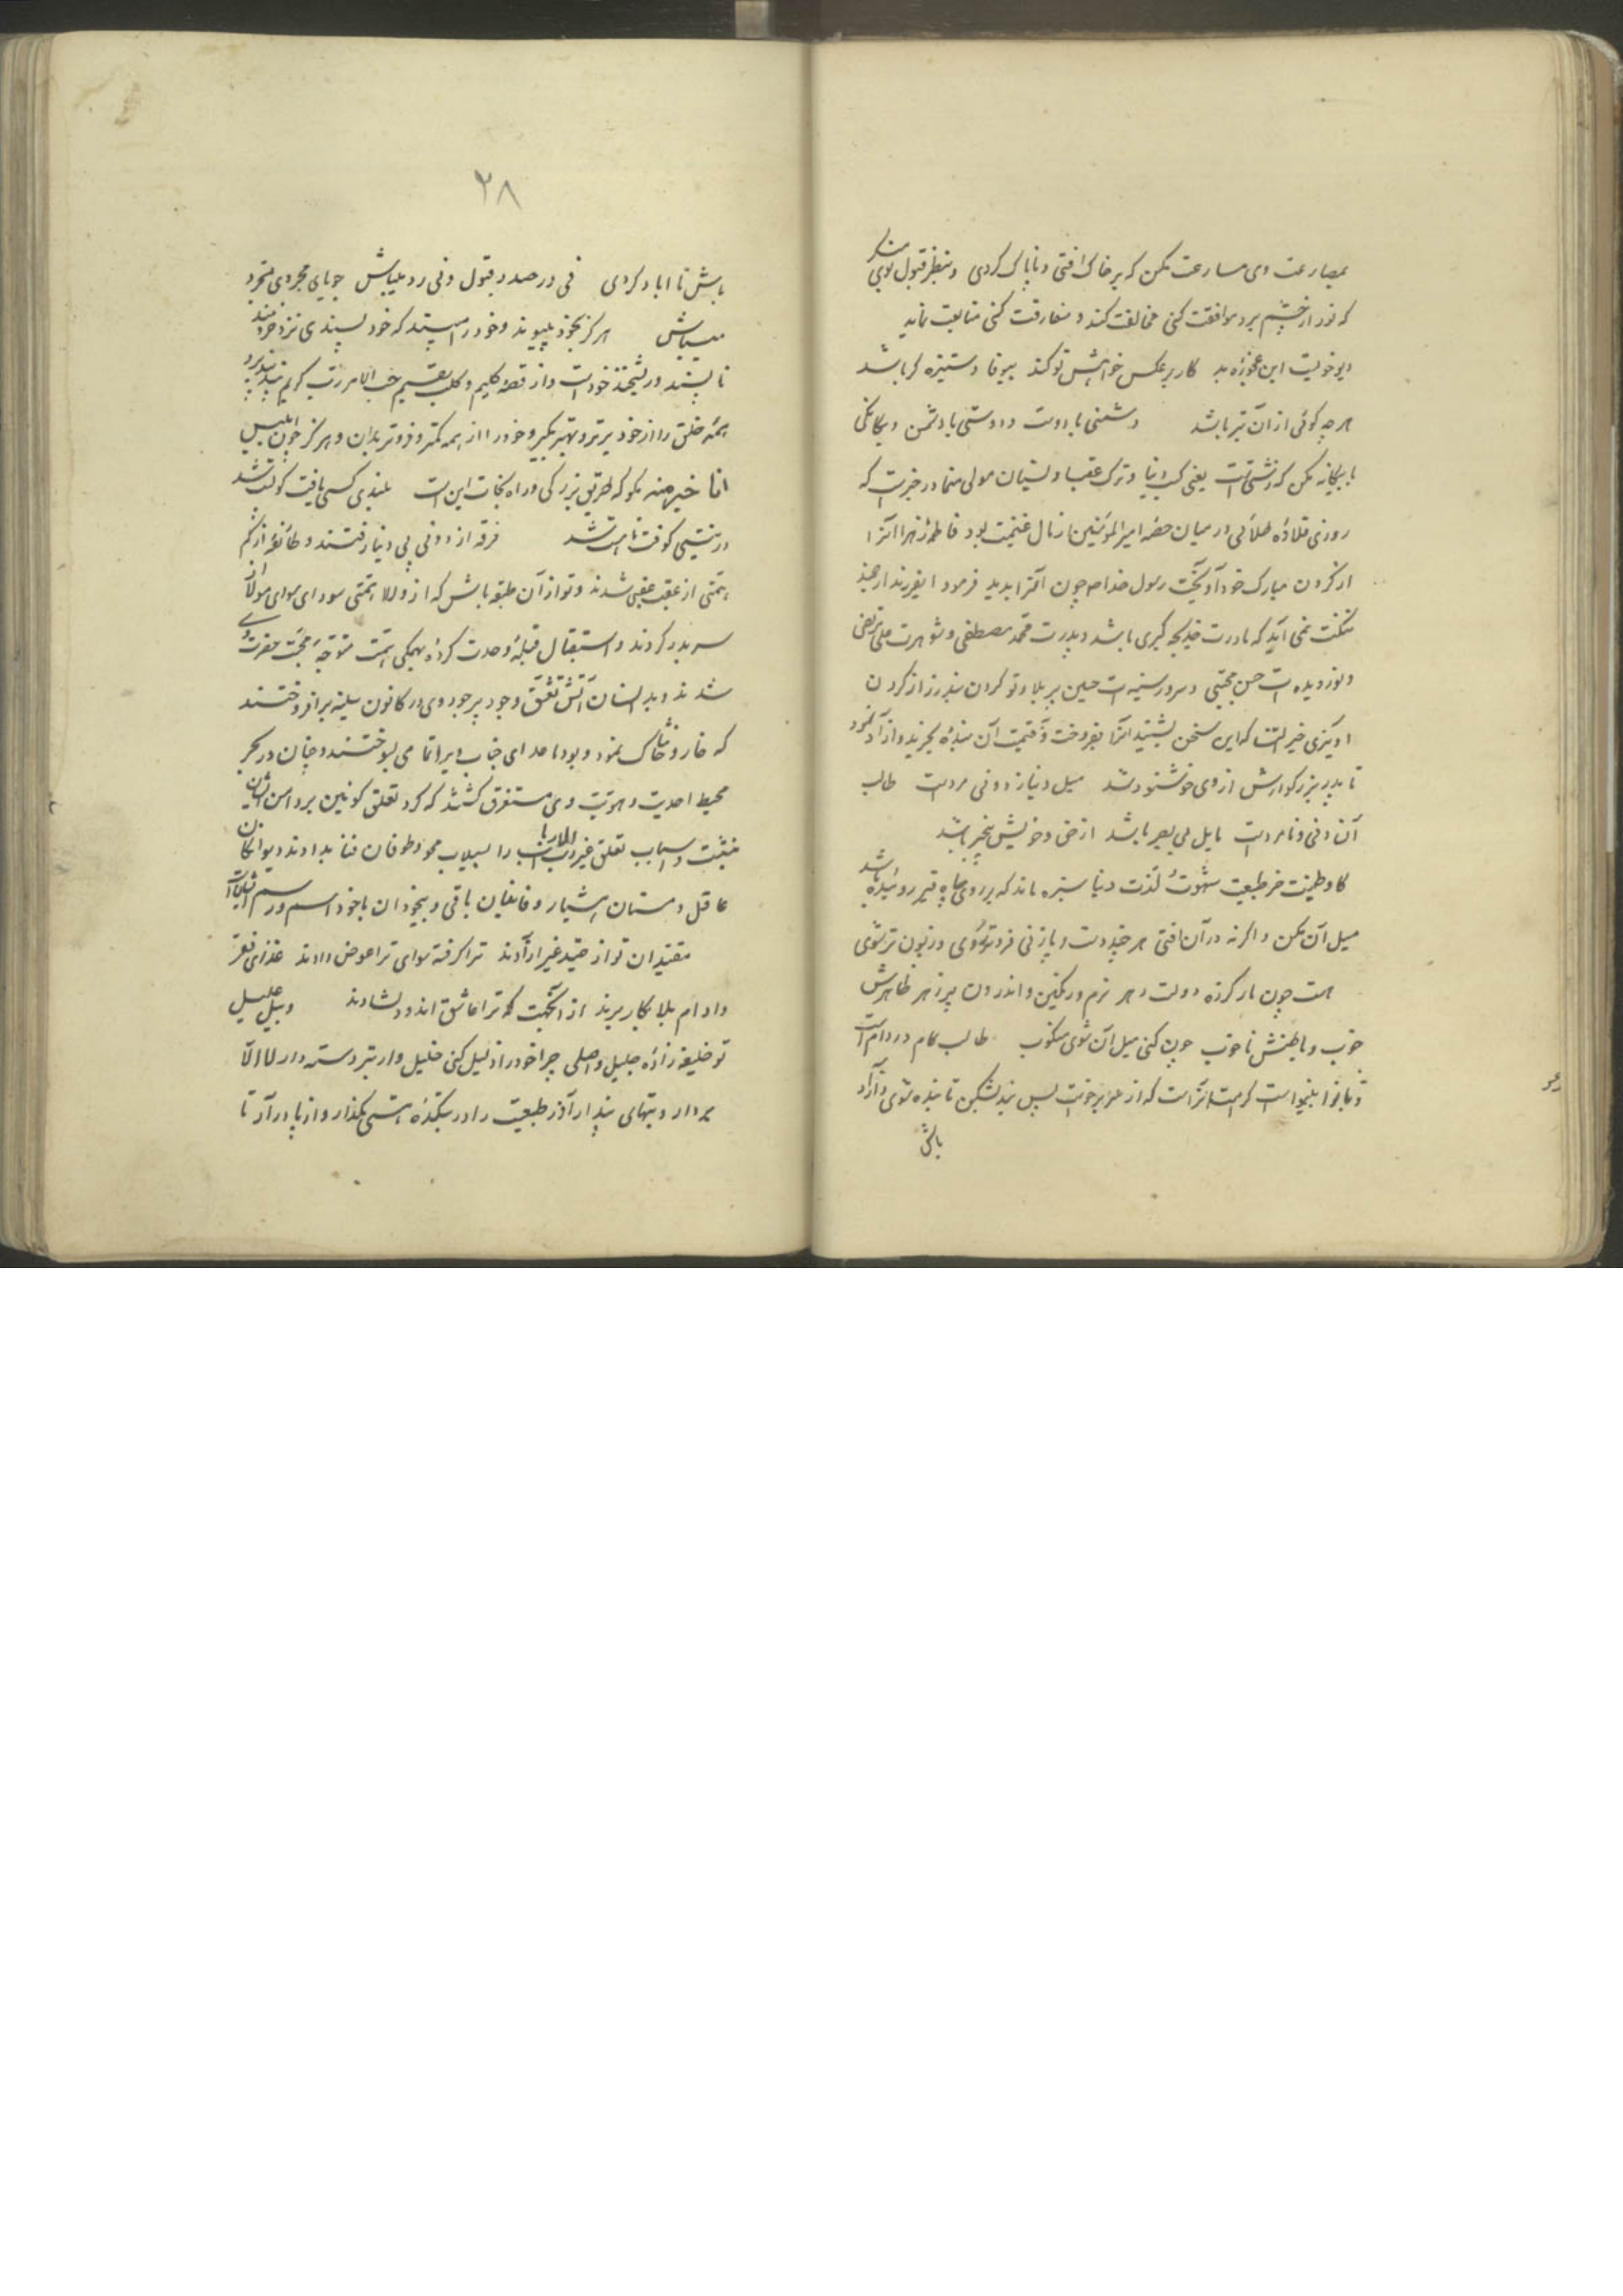 بمصارعت وی مسارعت مکن که بر خاک افتی و ناپاک گردی و بنظر قبول بوی منکر
که نور از چشم برد موافقت کنی مخالفت کند و مفارقت کنی متابعت نماید
دیو خوئیست این عجوزه بد کار بر عکس خواهش تو کند بیوفا و ستیزه گر باشد
هر چه گوئی از آن بتر باشد دشمنی با دوست و دوستی با دشمن و یگانگی
با بیگانه مکن که زشتست یعنی کسب دنیا و ترک عقبا و نسیان مولی منما در خبرست که
روزی قلاده طلائی در میان حصه امیر المؤمنین از مال غنیمت بود فاطمه زهرا آنرا
از گردن مبارک خود آویخت رسول خدا ص چون آنرا بدید فرمود ایفرزند ارجمند
ننگت نمی آید که مادرت خدیجه کبری باشد و پدرت محمد مصطفی و شوهرت علی مرتضی
و نور دیده ات حسن مجتبی و سرور سینه ات حسین پر بلا و تو گران بند زر از گردن
آویزی خیر النسا که این سخن بشنید آنرا بفروخت و قیمت آن بنده بخرید و آزاد نمود
تا پدر بزرگوارش از وی خوشنود شد میل دنیا ز دونی مردست طالب
آن دنی و نامردست مایل بی بصر باشد از حق و خویش بیخبر باشد
گاو طینت خر طبیعت شهوت لذت دنیا سبزه ماند که بر روی چاه قیر روئیده باشد
میل آن مکن و اگر نه در آن افتی هر چند دست و پا زنی فروتر روی و زبون تر شوی
هست چون مار گرزه دولت دهر نرم و رنگین و اندرون پر زهر ظاهرش
خوب و باطنش ناخوب چون کنی میل آن شوی منکوب طالب کام در دام است
پس بند بشکن تا بنده شوی و آزاد
باش
۲۸
باش تا آباد گردی فی در صدد قبول و فی رد میباش جویای مجردی مجرد
میباش هرگز بخود مپیوند و خود را مپسند که خود پسندی نزد خردمند
ناپسند و ریشخند خودست و از قصه کلیم و کلب حسب الامر رب کریم پند پذیر
همه خلق را از خود برتر و بهتر بگیر و خود را از همه کمتر و فروتر بدان و هرگز چون ابلیس
انا خیر منه مگو که طریق بزرگی و راه نجات این است بلندی کسی یافت کو پست شد
در نیستی کوفت تا هست شد فرقه از دونی پی دنیا رفتند و طائفه از کم
همتی از عقب عقبی شدند و تو از آن طبقه باش که از والا همتی سودای سوای مولا از
سر بدر کردند و استقبال قبله وحدت کرده بهمگی همت متوجه محبت حضرت وی
شدند و بدانسان آتش تعشق وجود پر جود وی در کانون سینه بر افروختند
که خار و خاشاک نمود و بود ماعدای جناب ویرا تمامی بسوختند و چنان در بحر
محیط احدیت و هویت وی مستغرق گشتند که گرد تعلق کونین بر دامن ایشان
ننشست و اسباب تعلق غیر رب الارباب را بسیلاب محو و طوفان فنا بدادند دیوانگان
عاقل و مستان هشیار و فانیان باقی و بیخودان باخود
مقیدان تو از قید غیر آزادند ترا گرفته سوای ترا عوض دادند
تو خلیفه زاده جلیل و اصلی چرا خود را ذلیل کنی خلیل وار تبر دسته دار لا الا
بردار و بتهای پندار آزر طبیعت را در بتکده هستی مگذار و از پا در آر تا